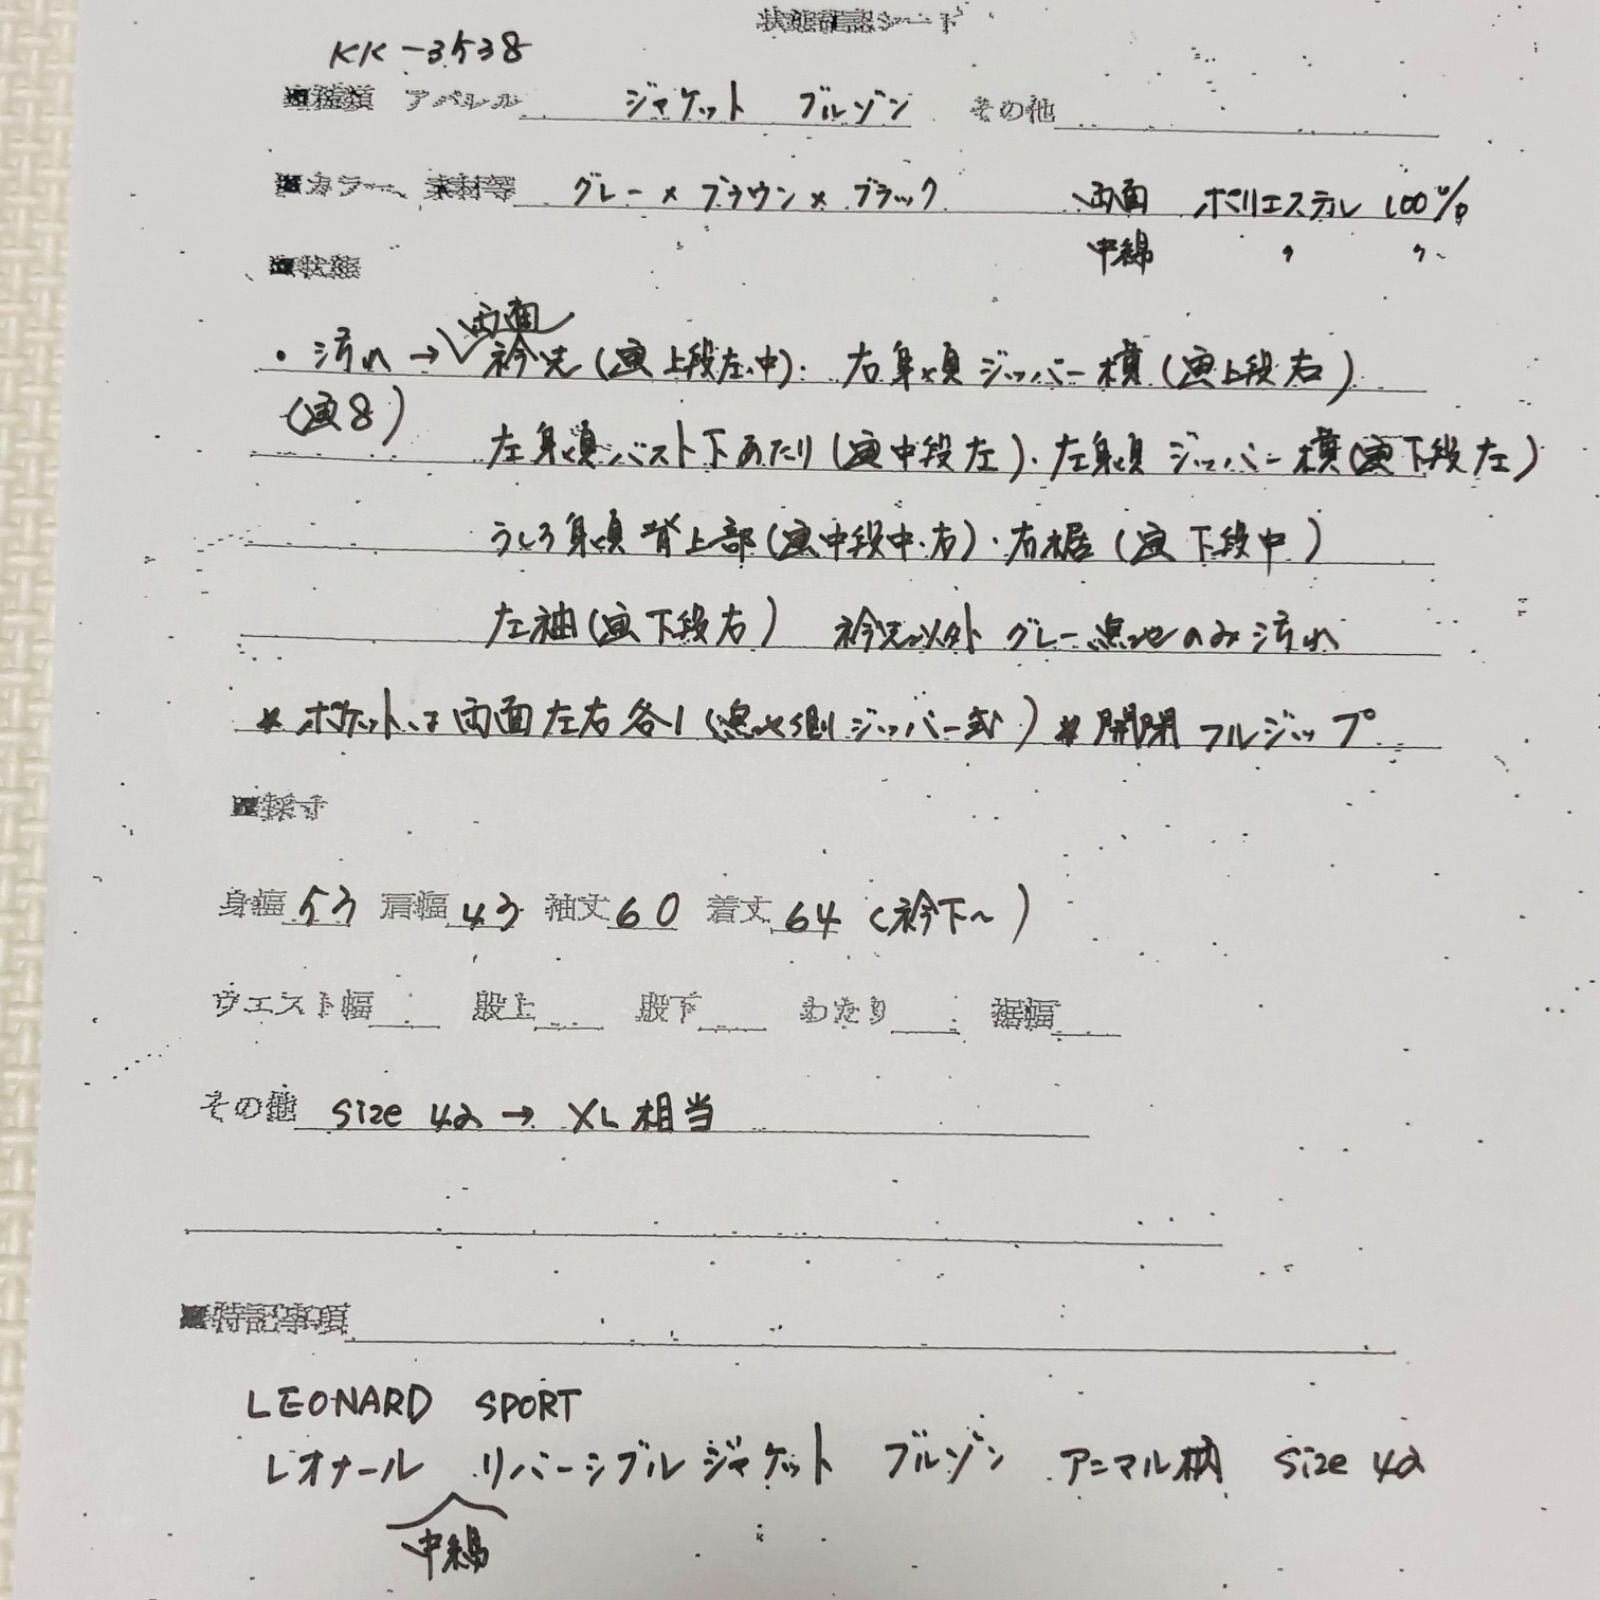 状態確認シート
KK-3538
■種類 アパレル ジャケット ブルゾン その他
■カラー、素材等 グレー×ブラウン×ブラック 両面 ポリエステル 100%
中綿 〃 〃
■状態
両面
・汚れ → 衿先(画上段左、中)・右身頃ジッパー横(画上段右)
(画8)
左身頃バスト下あたり(画中段左)・左身頃ジッパー横(画下段左)
うしろ身頃背上部(画中段中・右)・右裾(画下段中)
左袖(画下段右) 衿先以外グレー無地のみ汚れ
* ポケットは両面左右各1(無地側ジッパー式) * 開閉フルジップ
■採寸
身幅 53 肩幅 43 袖丈 60 着丈 64 (衿下~)
ウエスト幅 股上 股下 わたり 裾幅
その他 size 42 → XL相当
■特記事項
LEONARD SPORT
レオナール リバーシブルジャケット ブルゾン アニマル柄 size 42
中綿